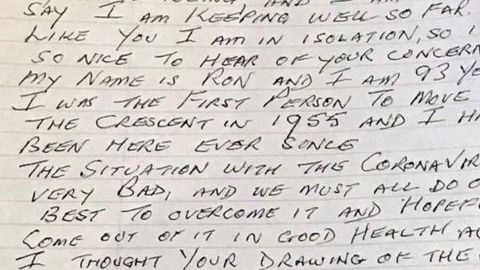 SAY I AM KEEPING WELL SO FAR.
LIKE YOU I AM IN ISOLATION, SO I
SO NICE TO HEAR OF YOUR CONCERN
MY NAME IS RON AND I AM 93 YE
I WAS THE FIRST PERSON TO MOVE
THE CRESCENT IN 1955 AND I HA
BEEN HERE EVER SONCE
THE SITUATION WITH THE CORONAVIR
VERY BAD, AND WE MUST ALL DO O
BEST TO OVERCOME IT AND HOPEF
COME OUT OF IT IN GOOD HEALTH
I THOUGHT YOUR DRAWING OF THE